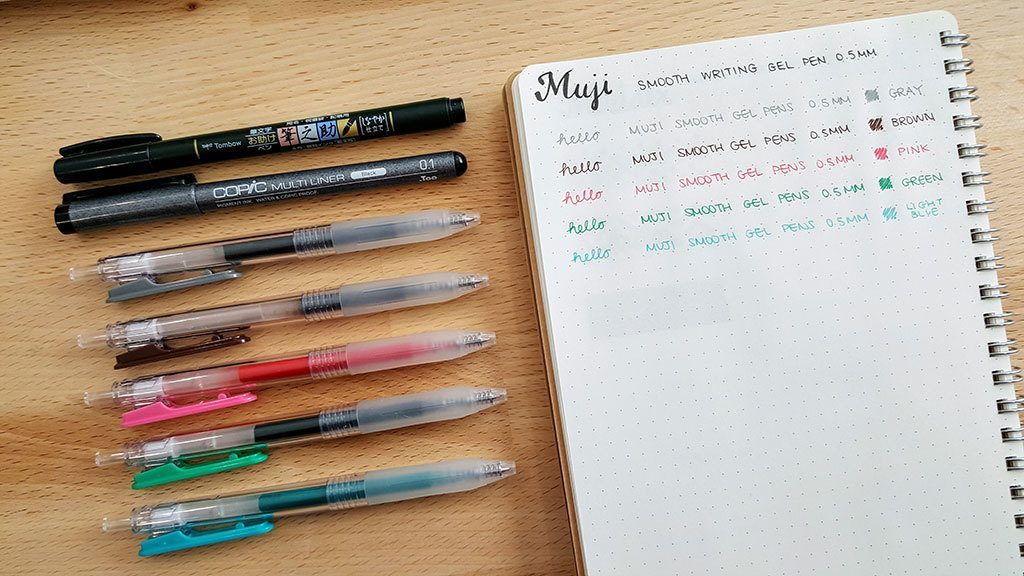 Tombow 筆文字 お助け ペン 筆之助 しなやか 仕立て
COPIC MULTI LINER Black 0.1
PIGMENT INK, WATER & COPIC PROOF .Too
Muji SMOOTH WRITING GEL PEN 0.5MM
hello MUJI SMOOTH GEL PENS 0.5MM GRAY
hello MUJI SMOOTH GEL PENS 0.5MM BROWN
hello MUJI SMOOTH GEL PENS 0.5MM PINK
hello MUJI SMOOTH GEL PENS 0.5MM GREEN
hello MUJI SMOOTH GEL PENS 0.5MM LIGHT
BLUE